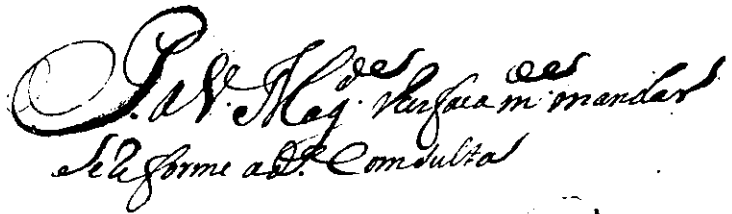 P. a V. Mag.de lhe faça m.ce mandar
se lhe forme a d.a Comsulta